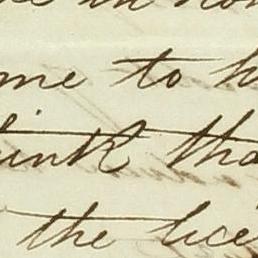 me to h
hink tha
the lice